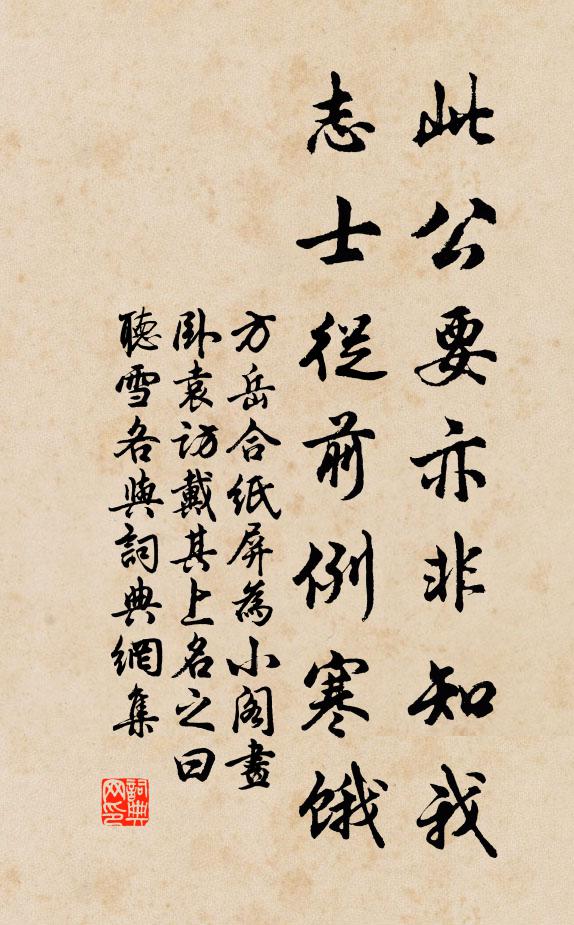 此公要亦非知我
志士從前例寒餓
方岳合紙屏為小閣畫
臥袁訪戴其上名之曰
聽雪各與詞典網集
詞典网印